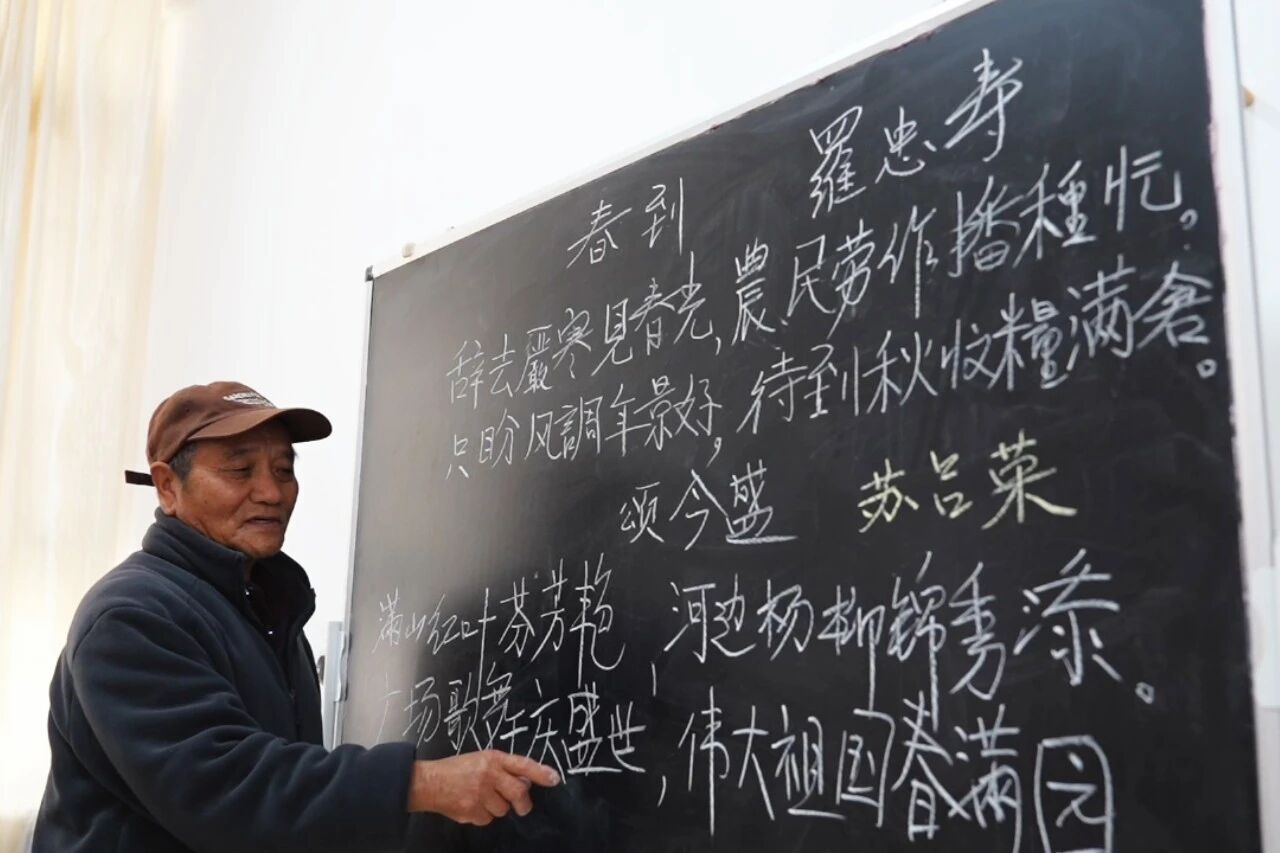 春到 羅忠寿
辞去嚴寒見春光,農民劳作播種忙。
只盼风調年景好,待到秋收糧满倉。
颂今盛 苏吕菜
满山红叶芬芳艳,河边杨柳锦秀添。
广场歌舞庆盛世,伟大祖国春满园